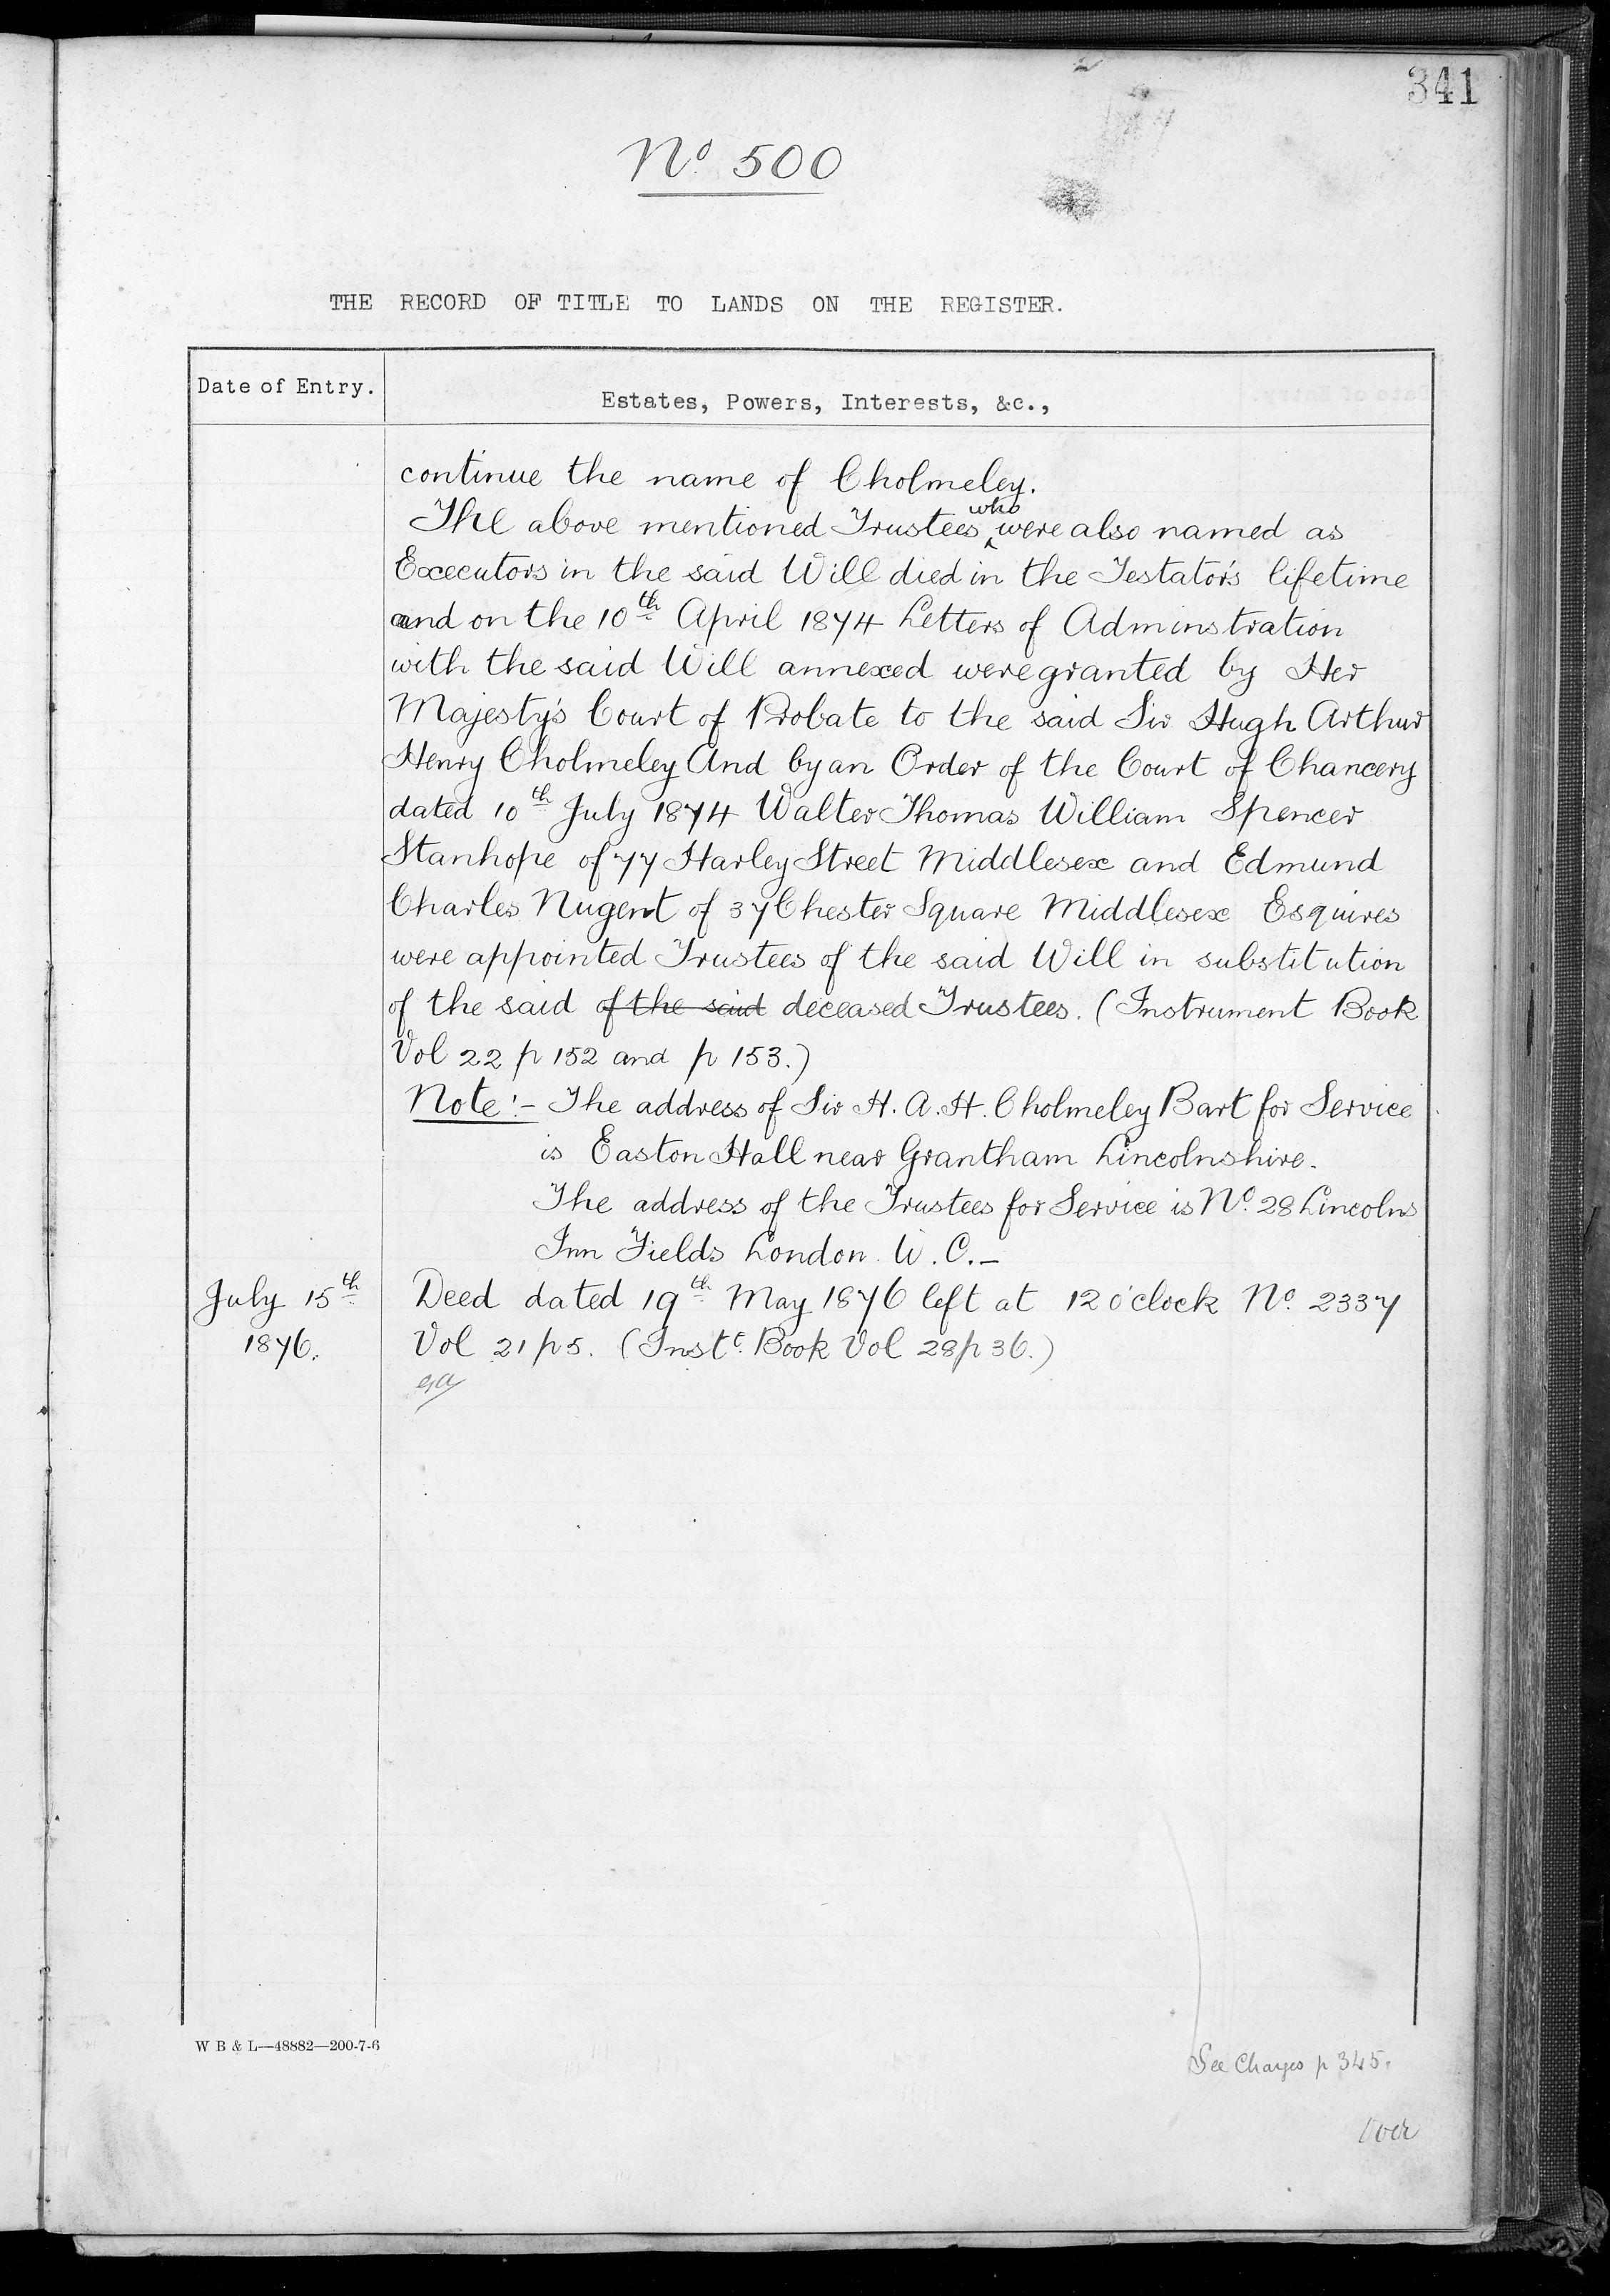 341
No. 500
THE RECORD OF TITLE TO LANDS ON THE REGISTER.
Date of Entry.
Estates, Powers, Interests, &c.,
continue the name of Cholmeley.
The above mentioned Trustees who were also named as
Executors in the said Will died in the Testator's lifetime
and on the 10th April 1874 Letters of Adminstration
with the said Will annexed were granted by Her
Majesty's Court of Probate to the said Sir Hugh Arthur
Henry Cholmeley And by an Order of the Court of Chancery
dated 10th July 1874 Walter Thomas William Spencer
Stanhope of 77 Harley Street Middlesex and Edmund
Charles Nugent of 37 Chester Square Middlesex Esquires
were appointed Trustees of the said Will in substitution
of the said of the said deceased Trustees. (Instrument Book
Vol 22 p 152 and p 153.)
Note:- The address of Sir H. A. H. Cholmeley Bart for Service
is Easton Hall near Grantham Lincolnshire.
The address of the Trustees for Service is No. 28 Lincolns
Inn Fields London W. C.-
July 15th
1876.
Deed dated 19th May 1876 left at 12 o'clock No. 2337
Vol 21 p 5. (Instt. Book Vol 28 p 36.)
W B & L—48882—200-7-6
See Charges p 345.
Over